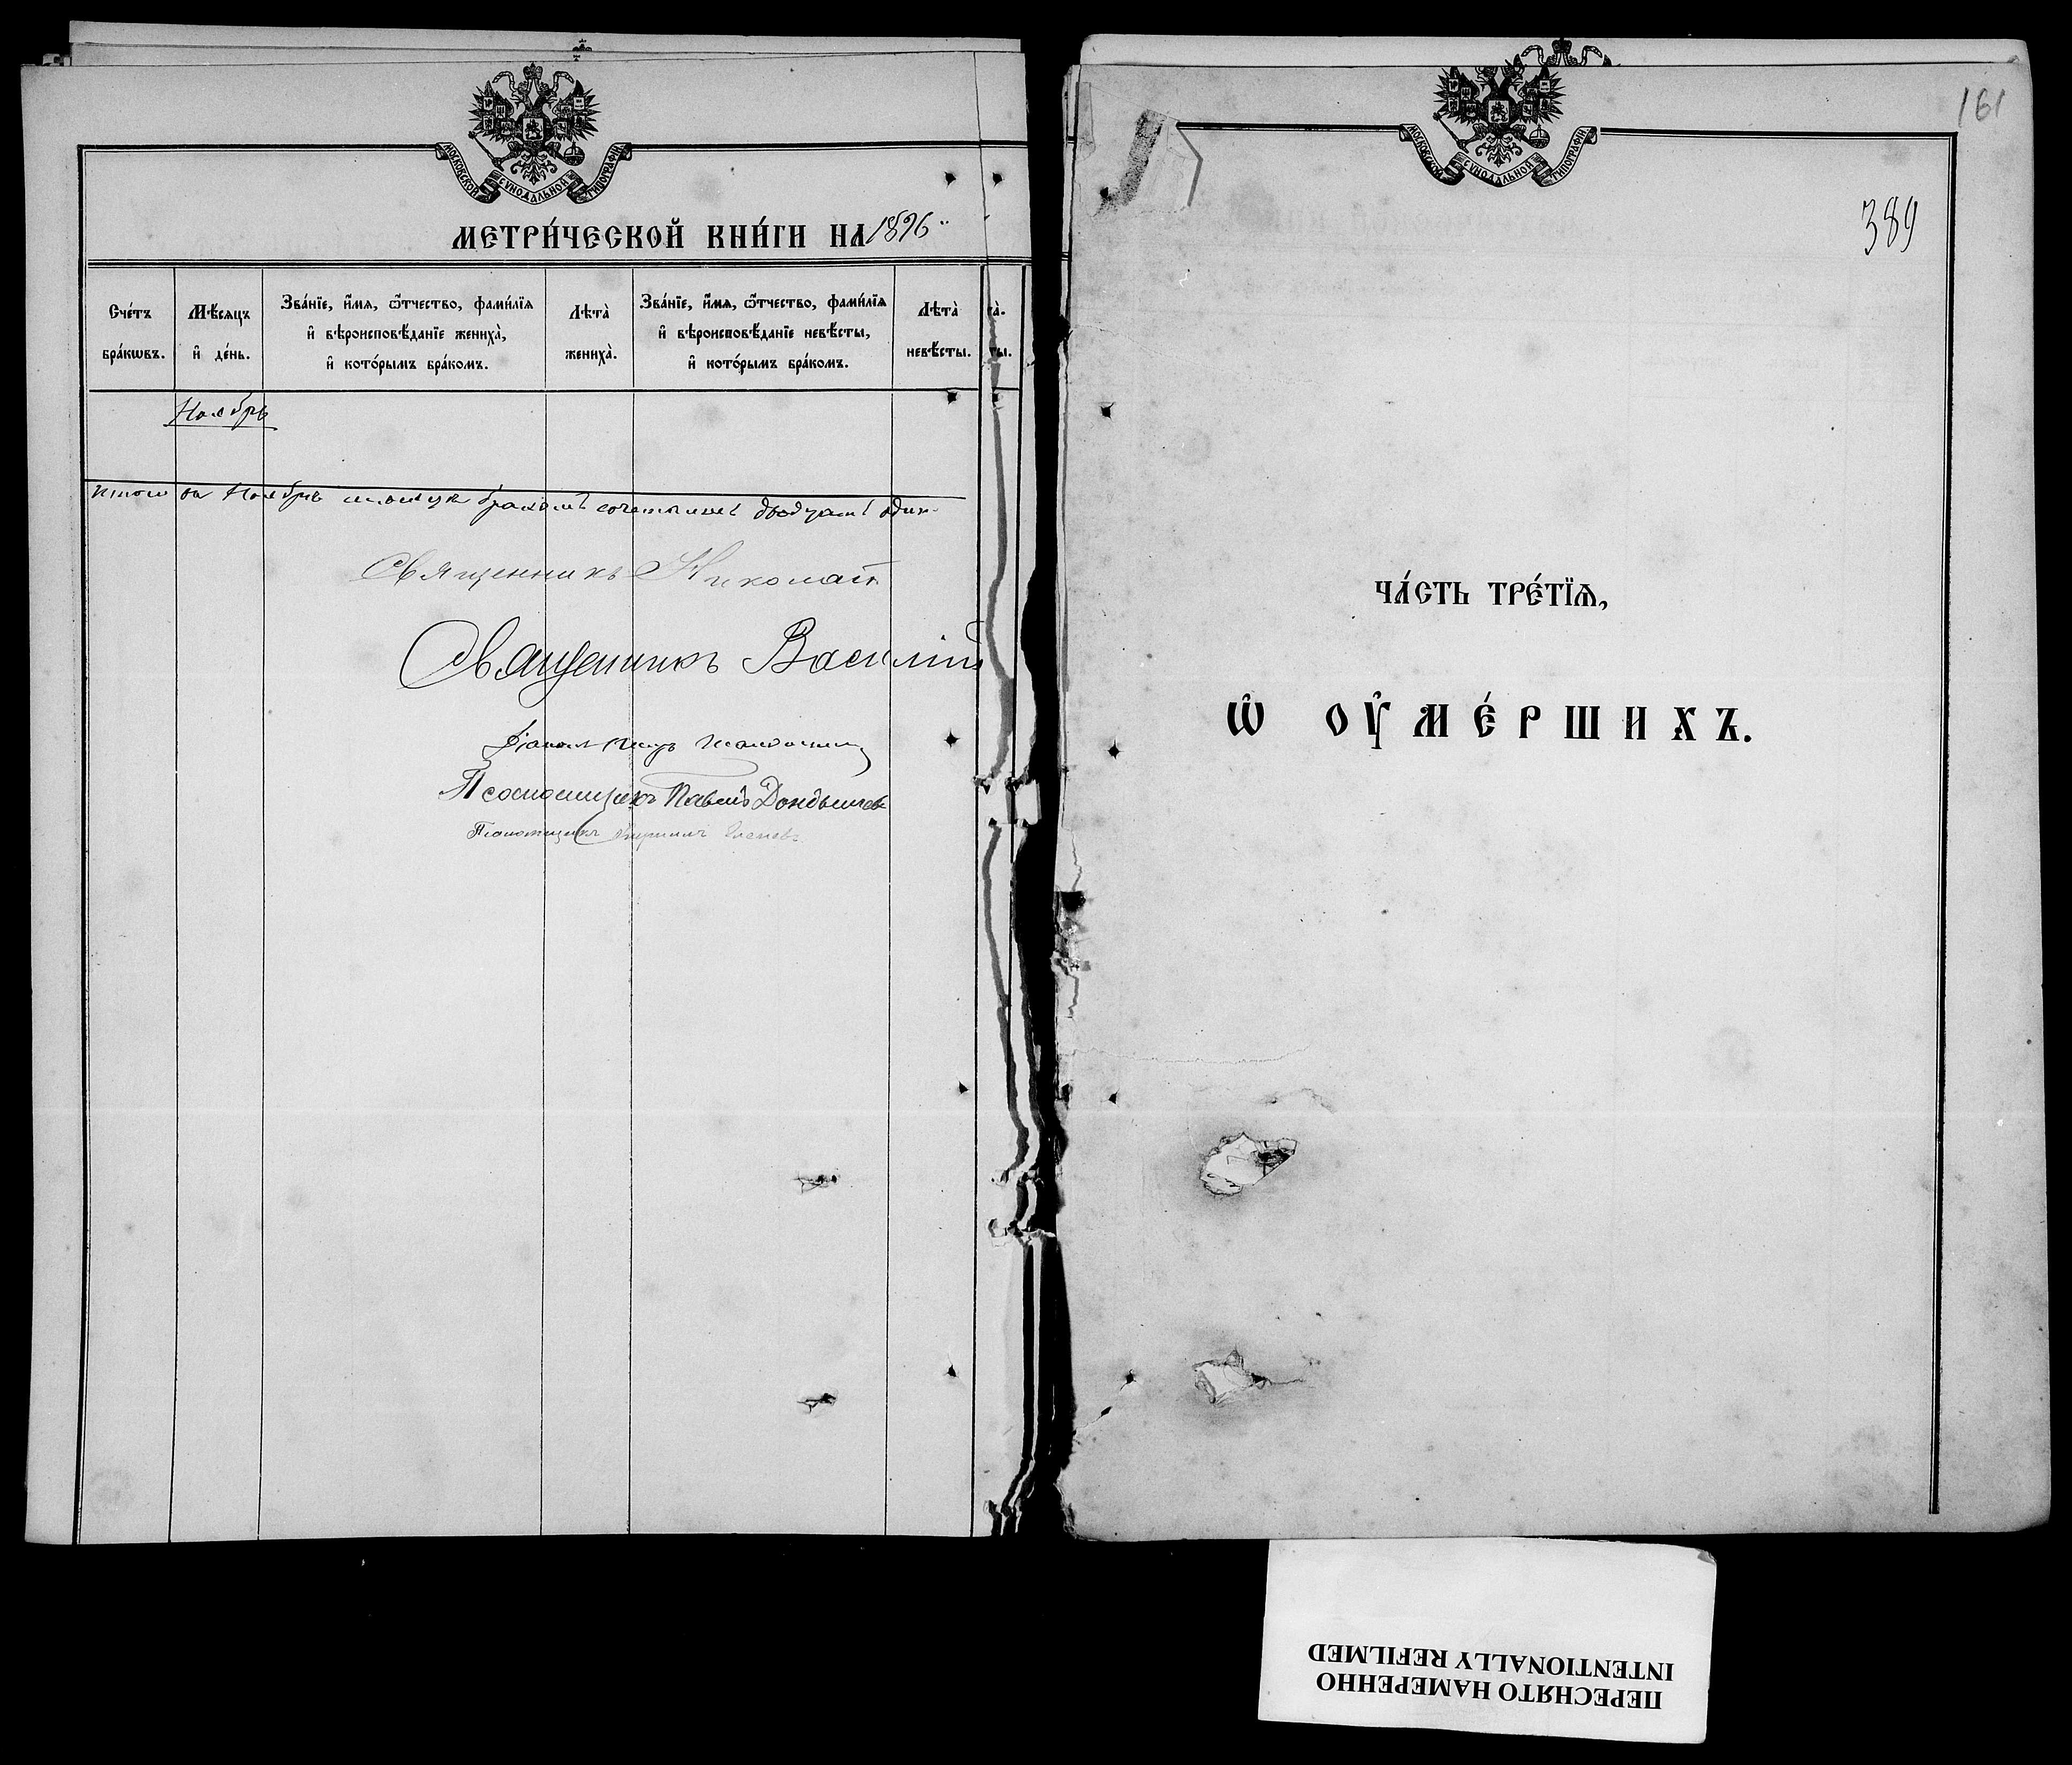 МОСКОВСКОЙ СѴНОДАЛЬНОЙ ТИПОГРАФІИ
МЕТРИ́ЧЕСКОЙ КНИ́ГИ НА 1896
Сче́тъ бра́кωвъ.
Мѣ́сяцъ и҆ де́нь.
Зва́нїе, и҆́мѧ, ѻ҆́тчество, фами́лїѧ и҆ вѣроисповѣ́данїе женихà, и҆ кото́рымъ бра́комъ.
Лѣтà женихà.
Зва́нїе, и҆́мѧ, ѻ҆́тчество, фами́лїѧ и҆ вѣроисповѣ́данїе невѣ́сты, и҆ кото́рымъ бра́комъ.
Лѣтà невѣ́сты.
тà.
ты.
Ноябрь
Итого въ Ноябрѣ мѣсяцѣ бракомъ сочетались двадцать один
Священникъ Николай
Священникъ Василій
Псаломщикъ Павелъ
Псаломщикъ
МОСКОВСКОЙ СѴНОДАЛЬНОЙ ТИПОГРАФІИ
161
389
ЧА́СТЬ ТРЕ́ТЇѦ,
Ѡ҆ ОУ҆МЕ́РШИХЪ.
ПЕРЕСНЯТО НАМЕРЕННО
INTENTIONALLY REFILMED